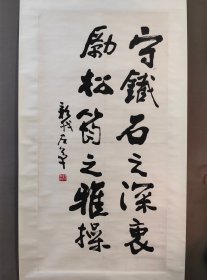 守鐵石之深衷
勵松筠之雅操